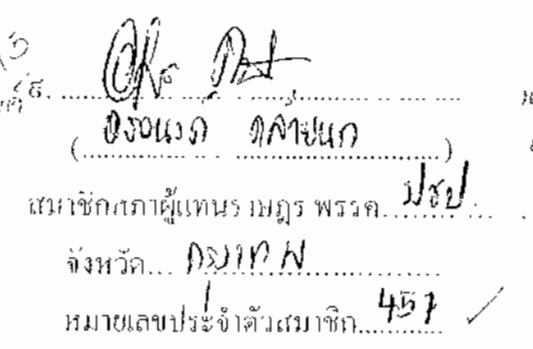 (อรอนงค์ คล้ายนก)
สมาชิกสภาผู้แทนราษฎร พรรค ปชป
จังหวัด กรุงเทพ
หมายเลขประจำตัวสมาชิก 457